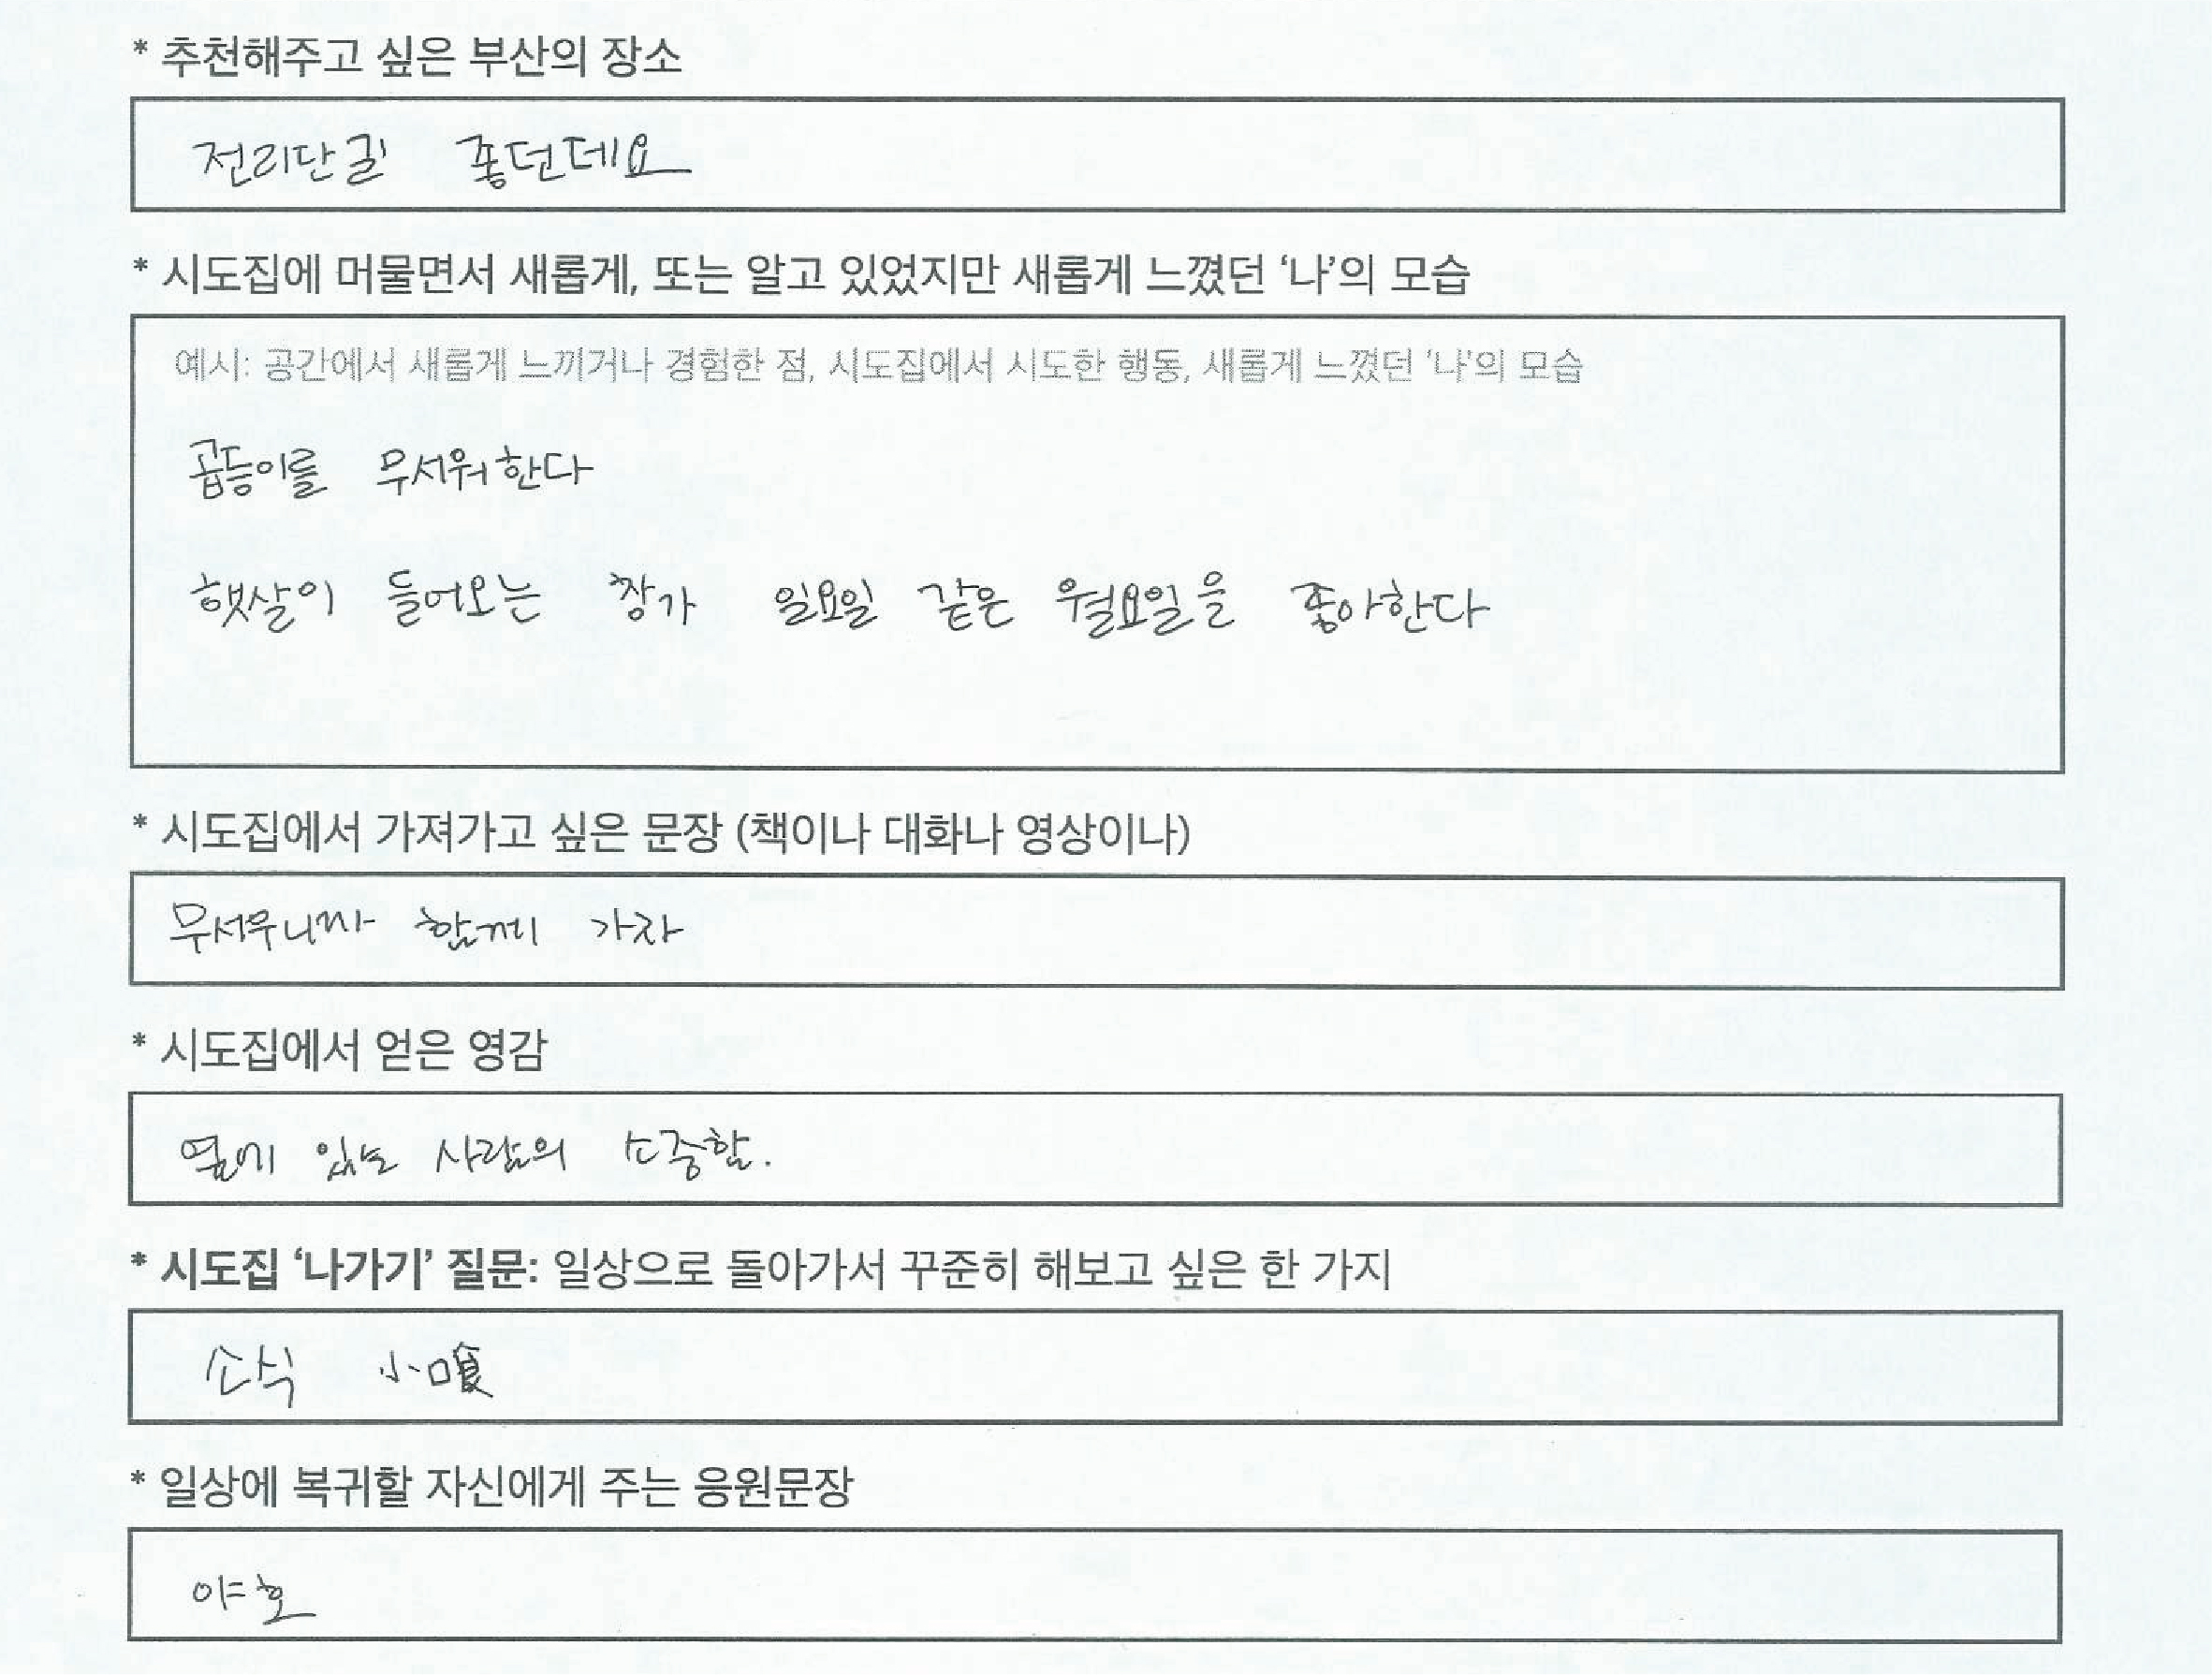 * 추천해주고 싶은 부산의 장소
전리단길 좋던데요
* 시도집에 머물면서 새롭게, 또는 알고 있었지만 새롭게 느꼈던 ‘나’의 모습
예시: 공간에서 새롭게 느끼거나 경험한 점, 시도집에서 시도한 행동, 새롭게 느꼈던 ‘나’의 모습
곱등이를 무서워한다
햇살이 들어오는 창가 일요일 같은 월요일을 좋아한다
* 시도집에서 가져가고 싶은 문장 (책이나 대화나 영상이나)
무서우니까 함께 가자
* 시도집에서 얻은 영감
옆에 있는 사람의 소중함.
* 시도집 ‘나가기’ 질문: 일상으로 돌아가서 꾸준히 해보고 싶은 한 가지
소식 小
* 일상에 복귀할 자신에게 주는 응원문장
야호